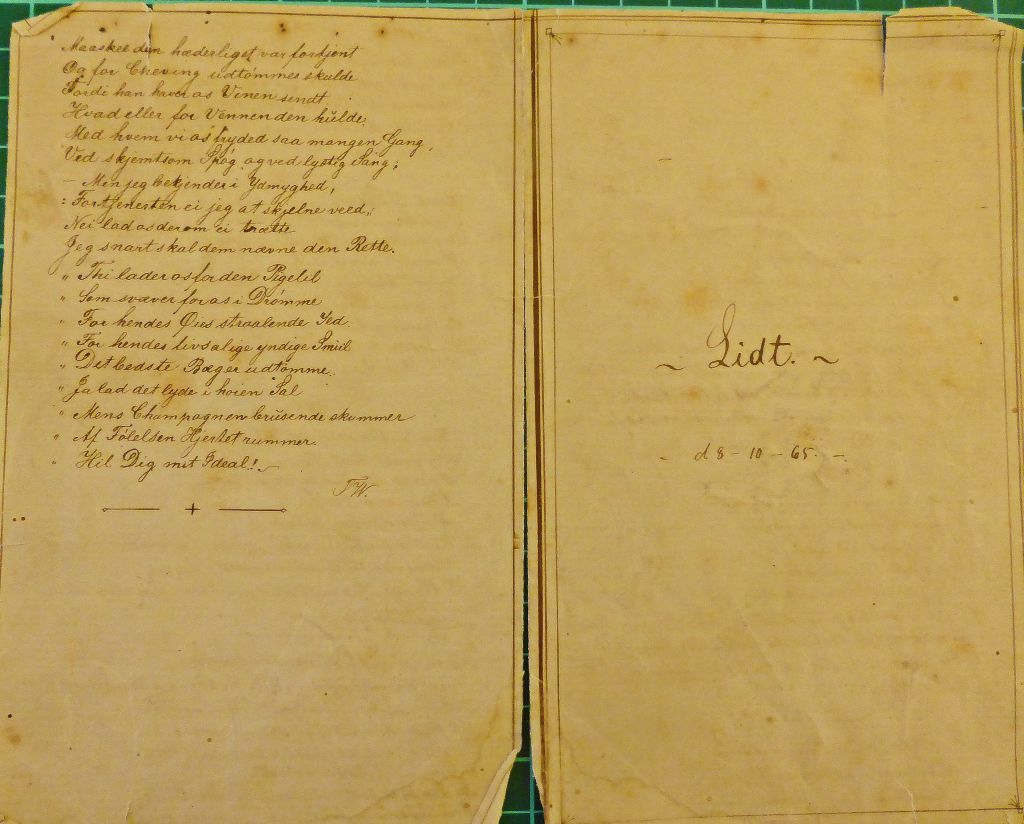 Maaskee den hæderligst var fortjent
Og for Cheving udtömmes skulde
Fordi han haver os Vinen sendt
Hvad eller for Vennen den hulde.
Med hvem vi os fryded saa mangen Gang,
Ved skjemtsom Spög og ved lystig Sang;
– Men jeg bekjender i Ydmyghed,
: Fortjenesten ei jeg at skjelne veed,:
Nei lad os derom ei trætte
Jeg snart skal dem nævne den Rette.
" Thi lader os for den Pigelil
" Som svæver for os i Drömme
" For hendes Öies straalende Ild
" For hendes livsalige yndige Smiil
" Det bedste Bæger udtömme.
" Ja lad det lyde i höien Sal
" Mens Champagnen brusende skummer
" Af Fölelsen Hjertet rummer.
" Hil Dig mit Ideal!
TW.
~ Lidt. ~
- d 8 - 10 - 65. -